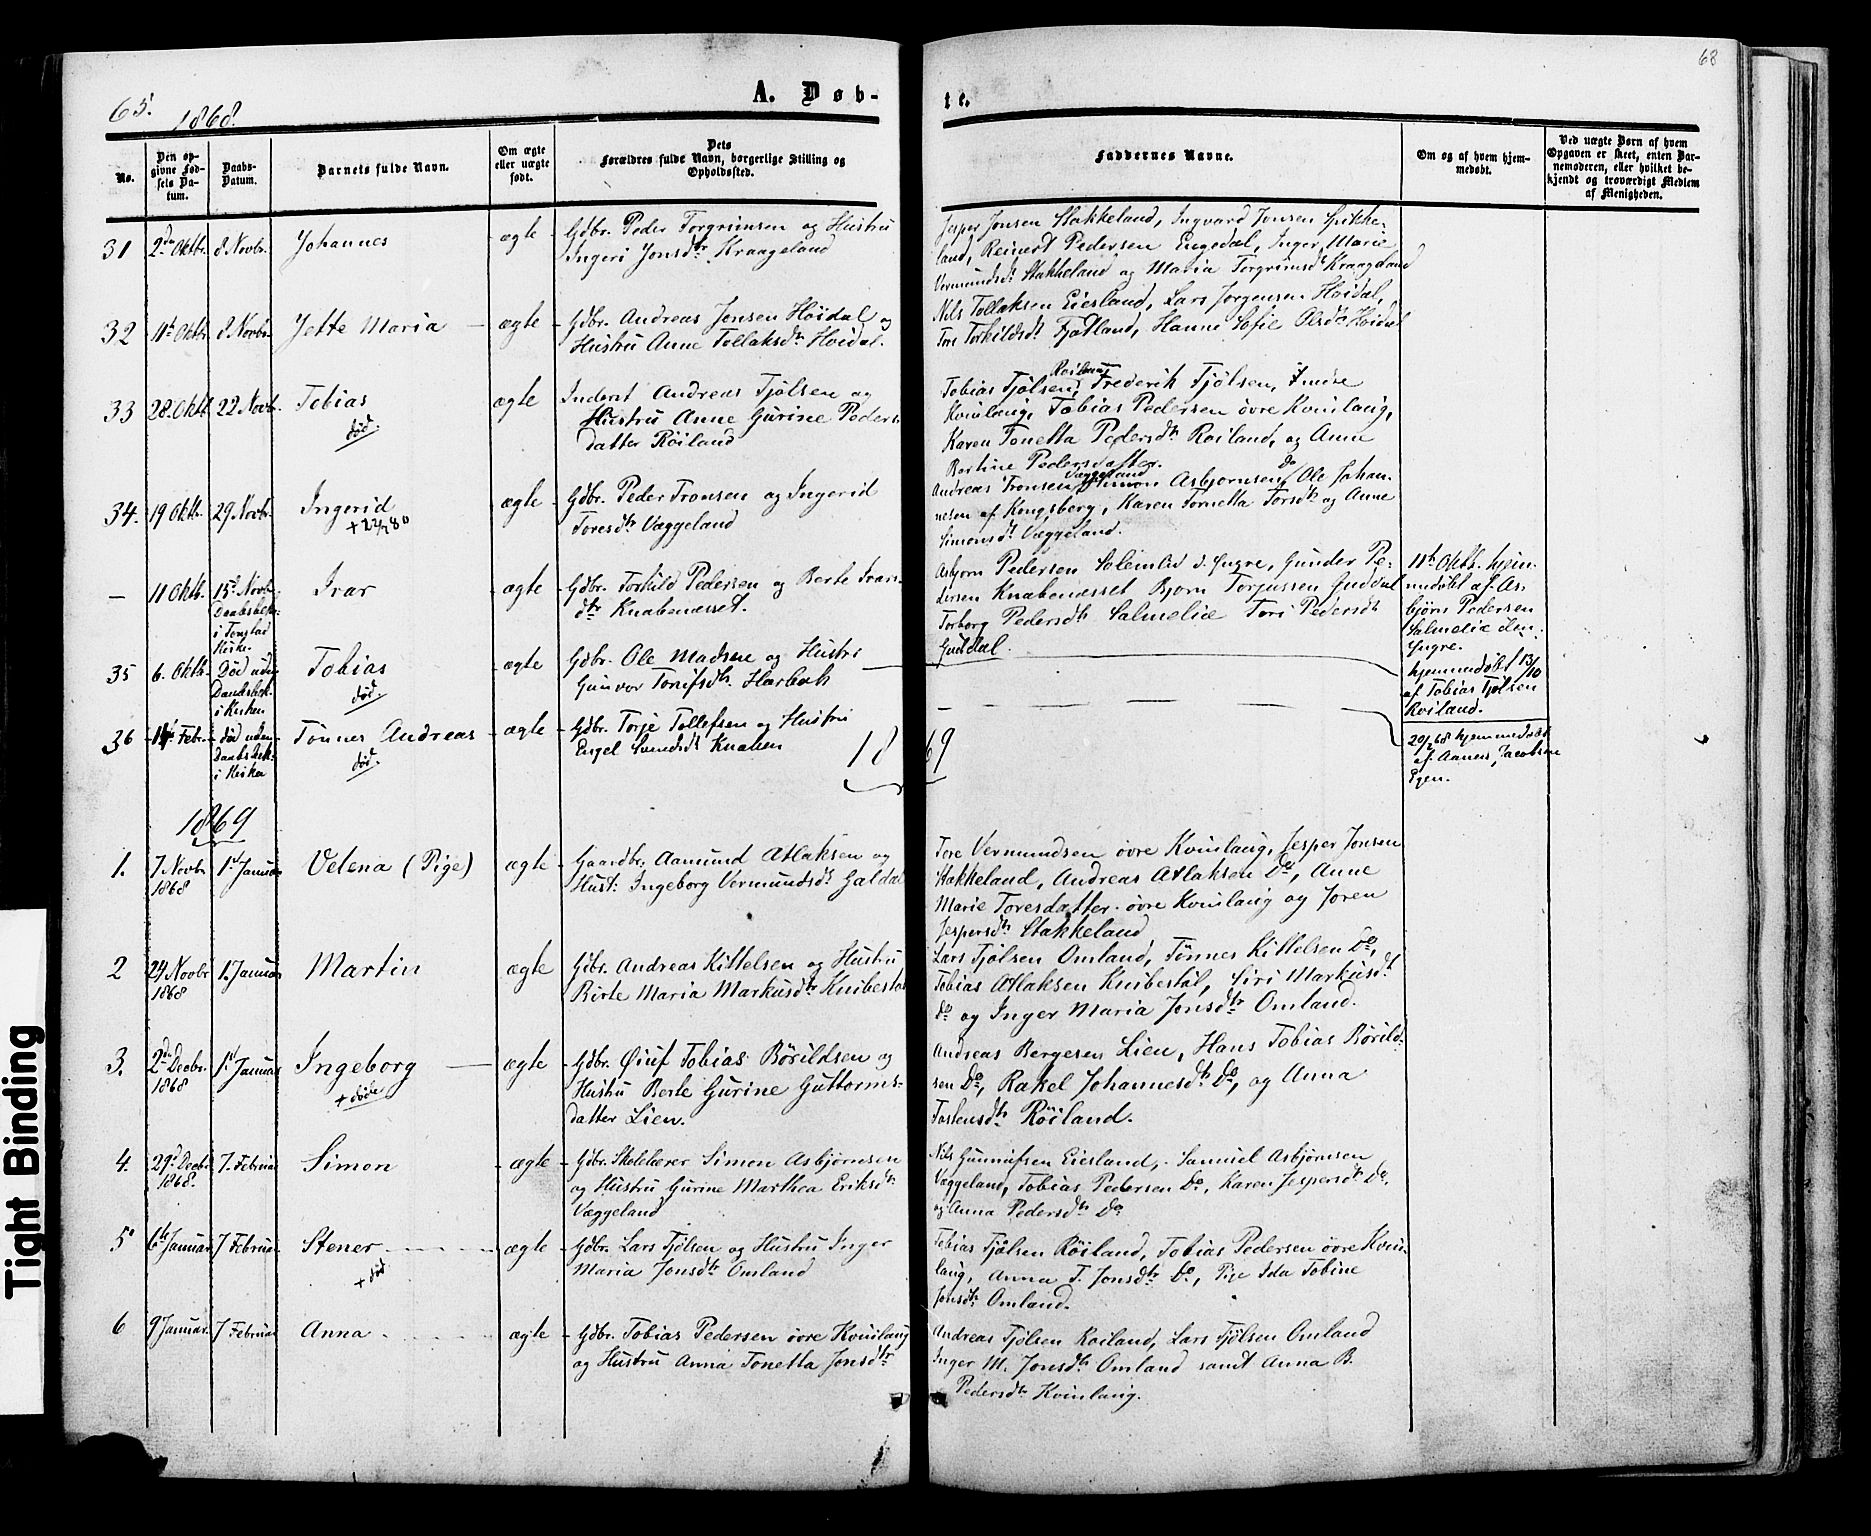 68
65. 1868. A. Døb-
te.
No.
Den op-
givne Fød-
sels Da-
tum.
Daabs-
Datum.
Barnets fulde Navn.
Om ægte
eller uægte
født.
Dets
Forældres fulde Navn, borgerlige Stilling og
Opholdssted.
Faddernes Navne.
Om og af hvem hjem-
medøbt.
Ved uægte Børn af hvem
Opgaven er skeet, enten Bar-
nemoderen, eller hvilket be-
kjendt og troværdigt Medlem
af Menigheden.
31 2den Oktbr. 8 Novbr. Johannes ægte Gdbr. Peder Torgrimsen og Hustru
Ingeri Jonsdtr Kraageland
Jesper Jonsen Stakkeland, Ingvard Jonsen Spikke-
land, Reinert Pedersen Engedal, Inger Marie
Vermundsdt. Stakkeland og Maria Torgrimsdt Kraageland
32 11te Oktbr 8. Novbr. Jette Maria ægte Gdbr. Andreas Jonsen Höidal og
Hustru Anne Tollaksdtr Höidal.
Nils Tollaksen Eiesland, Lars Jørgensen Höidal,
Tore Torkildsdt Fjotland, Hanne Sofie Olsdtr Höidal
33 28. Oktbr 22. Novbr. Tobias ægte Inderst Andreas Tjölsen og
død.
Hustru Anne Gurine Peders-
datter Röiland
Roiland
Tobias Tjölsen, Frederik Tjölsen, Indre
Kvinlaug, Tobias Pedersen övre Kvinlaug,
Karen Tonetta Pedersdtr Roiland, og Anne
Bertine Pedersdatter.
34. 19 Oktbr. 29 Novbr. Ingerid ægte Gdbr. Peder Tronsen og Ingerid
Toresdtr Væggeland
Væggeland
Andreas Tronsen, Simon Asbjörnsen Do, Ole Johan-
nesen af Kongsberg, Karen Tornetta Torsdtr og Anne
Simonsdt. Væggeland.
— 11 Oktb. 15de Novbr. Ivar ægte Gdbr. Torkild Pedersen og Berte Ivars-
Daabsbekr.
i Tonstad
Kirke.
dtr Knabenæsset.
Asbjörn Pedersen Salmelid i Sugre, Gunder Pe-
dersen Knabenæsset Bjorn Torjussen Guddal
Torborg Pedersdtr Salmeliæ Tori Pedersdt
Guddal.
11te Oktb. hjem-
medöbt af As-
björn Pedersen
Salmeliæ
35 6. Oktbr. Død uden Tobias ægte Gdbr. Ole Madsen og Hustru
Daabsbek.
i Kirken
død.
Gunvor Harbak
hjemmedøbt 13/10
af Tobias Tjölsen
Roiland.
36 Febr. død uden Tönnes Andreas ægte Gdbr. Torje Tollefsen og Hustru
Daabsbek.
i Kirken
død.
Engel Svendsdt Knaben
20/2 68 hjemmedøbt
af Aanen Jacobsen
Egen.
18 69
1869
1. 7 Novbr. 1868 1st Januar Velena (Pige) ægte Gaardbr. Aamund Atlaksen og
Hust: Ingeborg Vermundsdt Galdal
Tore Vermundsen övre Kvinlaug, Jesper Jonsen
Stakkeland, Andreas Atlaksen Do, Anne
Marie Toresdatter övre Kvinlaug og Joren
Jespersdtr Stakkeland
2 24 Novbr 1868 1. Januar Martin ægte Gdbr. Andreas Kittelsen og Hustru
Birte Maria Markusdtr Knibestöl
Lars Tjölsen Omland, Tönnes Kittelsen Do,
Tobias Atlaksen Knibestöl, Siri Markusdt
do og Inger Maria Jonsdtr Omland.
3. 2den Decbr. 1868 1st Januar Ingeborg ægte Gdbr. Öiuf Tobias Börildsen og
+ døde
Hustru Berte Gurine Guttorms-
datter Lien.
Andreas Bergesen Lien, Hans Tobias Börild-
sen Do, Rakel Johannesdtr Do, og Anna
Tostensdtr Röiland.
4. 29d Decbr 1868. 7. Februar Simon ægte Gdbr. Skolelærer Simon Asbjörnsen
og Hustru Gurine Marthea Eriksdtr
Væggeland
Nils Gunnufsen Eiesland, Samuel Asbjörnsen
Væggeland, Tobias Pedersen Do, Karen Jespersdtr Do,
og Anna Pedersdtr Do
5 6te Januar 7 Februar Stener ægte Gdbr. Lars Tjölsen og Hustru Inger
+ død
Maria Jonsdtr Omland
Tobias Tjölsen Röiland, Tobias Pedersen övre Kvin-
laug, Anna T. Jonsdtr Do, Pige Ida Tobine
Jonsdtr Omland.
6 9 Januar. 7 Februar Anna ægte Gdbr. Tobias Pedersen övre Kvinlaug
og Hustru Anna Tonetta Jonsdtr
Andreas Tjölsen Roiland, Lars Tjölsen Omland
Inger M. Jonsdtr Omland samt Anna B.
Pedersdtr Kvinlaug.
Tight Binding